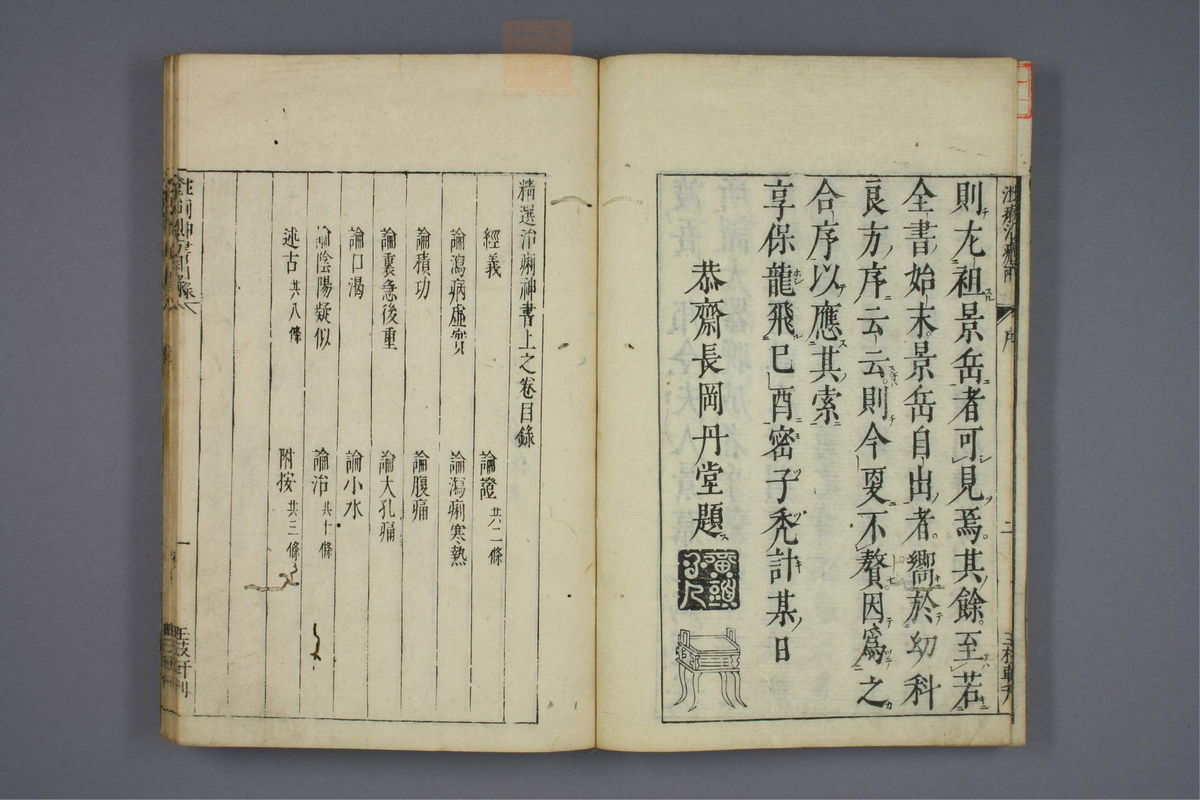 則尤祖景岳者可見焉其餘至若
全書始末景岳自出者嚮於幼科
良方序云云則今要不贅因爲之
合序以應其索
享保龍飛己酉密子禿計某日
恭齋長岡丹堂題
精選治痢神書上之卷目錄
經義
論證 共二條
論瀉病虛實
論瀉痢寒熱
論積功
論腹痛
論裏急後重
論大孔痛
論口渴
論小水
論陰陽疑似
論治 共十條
述古 共八條
附按 共三條